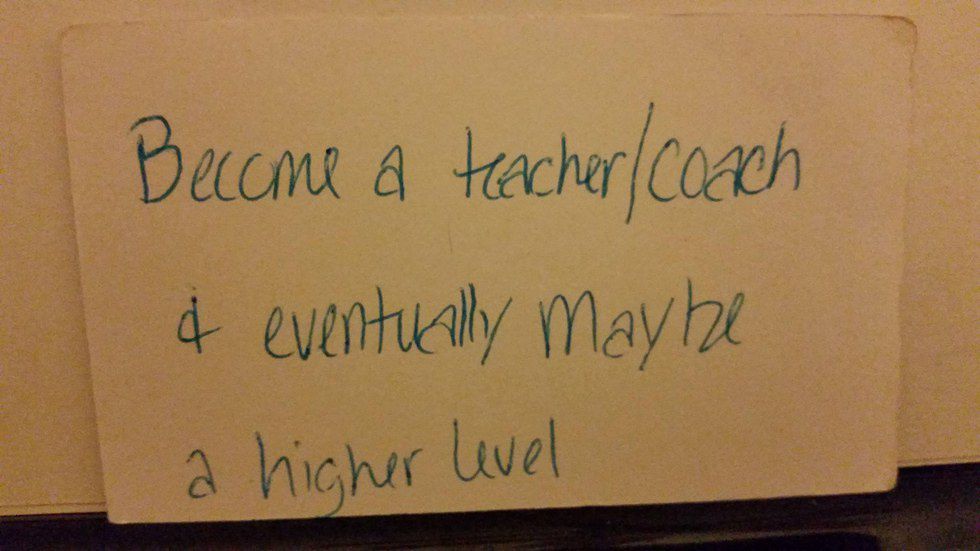 Become a teacher/coach
& eventually Maybe
a higher level